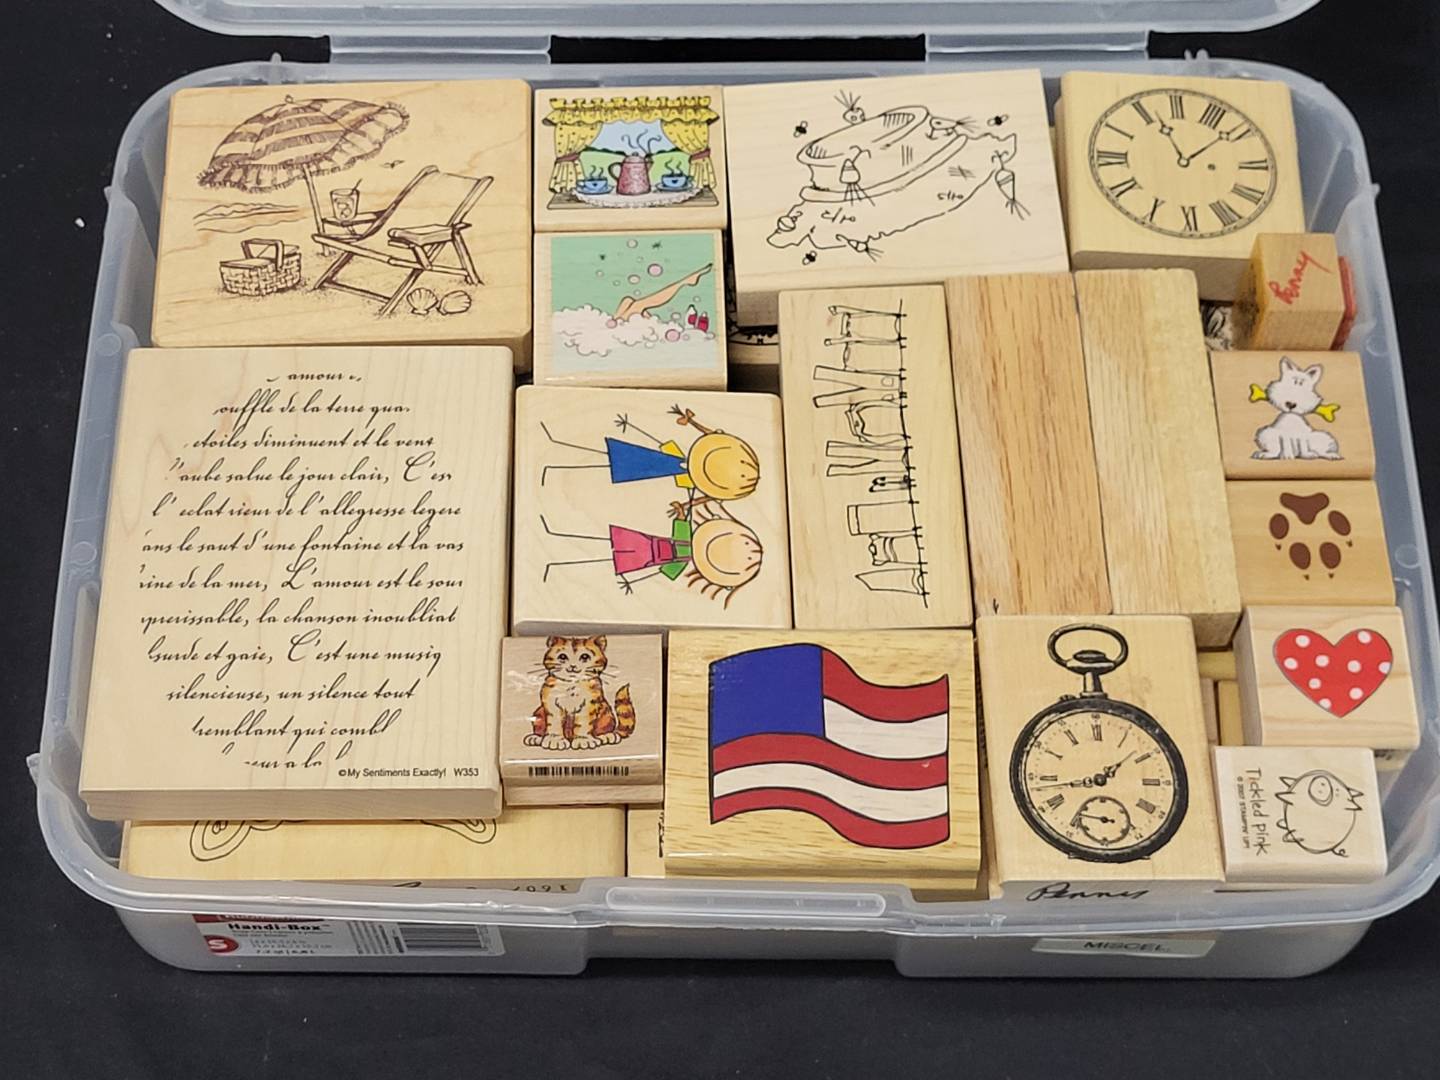 amour
ouffle de la terre qua
etoiles diminuent et le vent
'aube salue le jour clair, C'es
l' eclat rieur de l'allegresse legere
ans le saut d'une fontaine et la vas
ine de la mer, L'amour est le sour
perissable, la chanson inoubliab
lourde et gaie, C'est une musiq
silencieuse, un silence tout
tremblant qui combl
eur a la
©My Sentiments Exactly! W353
Penny
Tickled pink
© 2007 STAMPIN' UP!
Penny
1607
Handi-Box™
S
MISCEL.